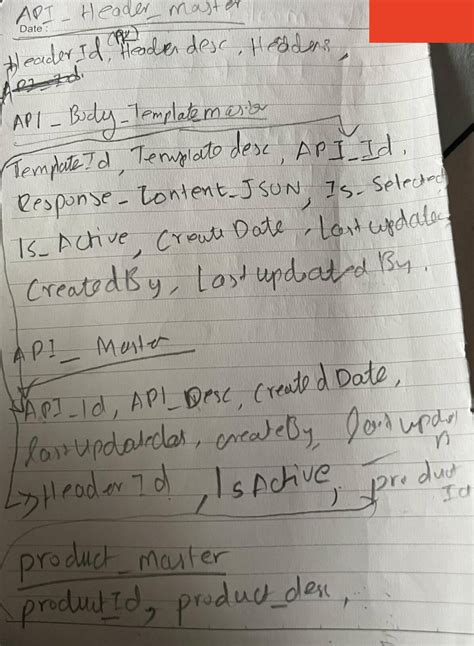 API_Header_master
Date:
HeaderId, (PK) Header desc, Headers,
API_Id.
API_Body_Template master
TemplateId, Template desc, API_Id,
Response_Content_JSON, Is_Selected
Is_Active, Create Date, Last updated
CreatedBy, Last updated By.
API_Master
API_Id, API_Desc, Created Date,
createBy,
HeaderId, IsActive, product
Id
product_master
productId, product_desc,